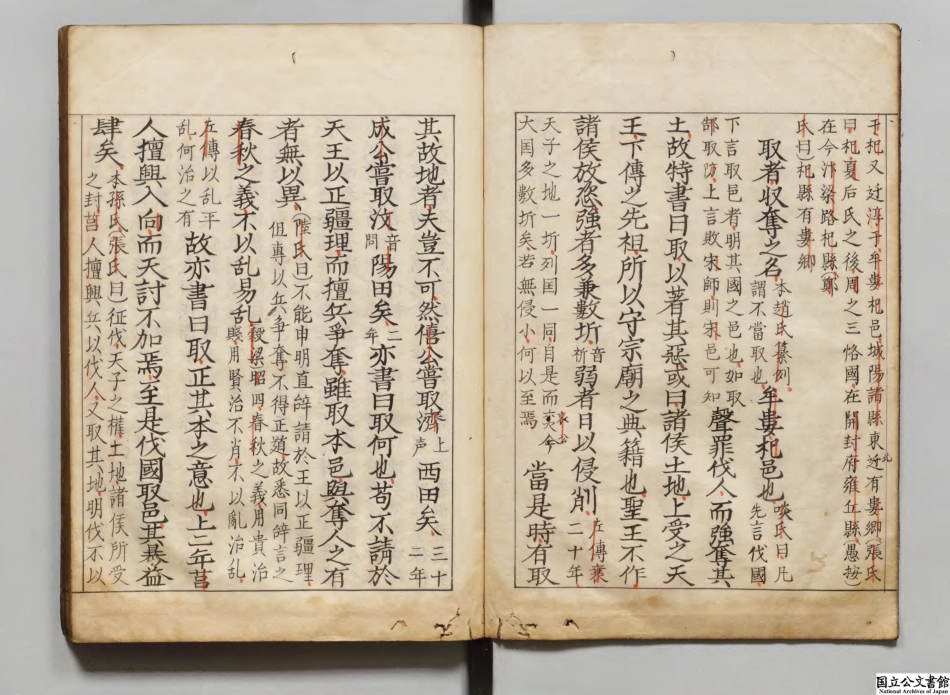 于杞又迁淳于牟婁杞邑城陽諸縣東近有婁鄉(張氏
曰杞夏后氏之後周之三恪國在開封府雍丘縣(愚按)
在今汴梁路杞縣(鄭
氏曰)杞縣有婁鄉
取者收奪之名本趙氏纂例謂不當取也牟婁杞邑也啖氏曰凡先言伐國
下言取邑者明其國之邑也如取郜取防上言敗宋師則宋邑可知聲罪伐人而強奪其
土故特書曰取以著其惡或曰諸侯土地上受之天
王下傳之先祖所以守宗廟之典籍也聖王不作
諸侯放恣強者多兼數圻音祈弱者日以侵削左傳襄二十年
天子之地一圻列国一同自是而衰今大国多數圻矣若無侵小何以至焉當是時有取
其故地者夫豈不可然僖公嘗取濟上声西田矣三十二年
成公嘗取汶音問陽田矣二年亦書曰取何也苟不請於
天王以正疆理而擅兵爭奪雖取本邑與奪人之有
者無以異(陸氏曰)不能申明直辭請於王以正疆理但專以兵爭奪不得正道故悉同辭言之
春秋之義不以乱易乱穀梁昭四春秋之義用貴治賤用賢治不肖不以亂治乱
左傳以乱平乱何治之有故亦書曰取正其本之意也上二年莒
人擅興入向而天討不加焉至是伐國取邑其暴益
肆矣本孫氏(張氏曰)征伐天子之權土地諸侯所受之封莒人擅興兵以伐人又取其地明伐不以
国立公文書館
National Archives of Japan